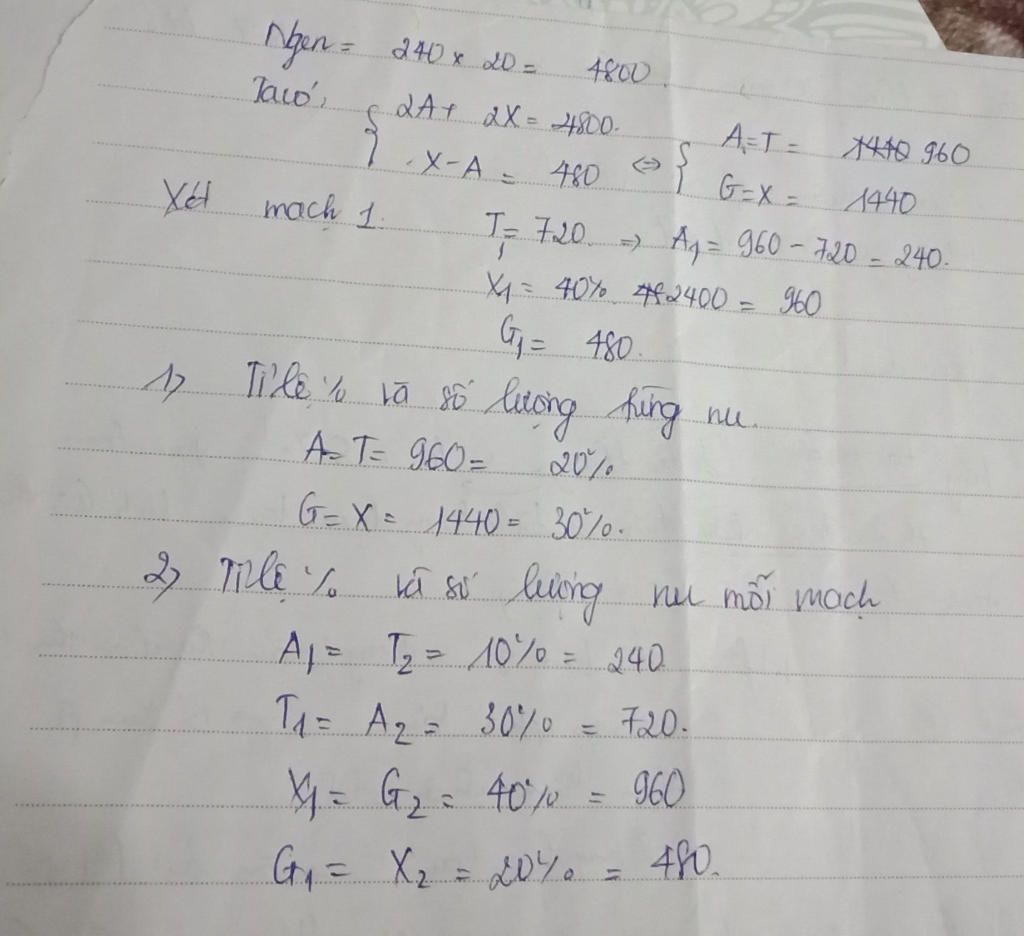 Ngen = 240 x 20 = 4800.
Ta có, { 2A + 2X = 4800. X - A = 480 <=> { A = T = 1440 960 G = X = 1440
Xét mạch 1. T1 = 720. => A1 = 960 - 720 = 240.
X1 = 40%. 48 2400 = 960
G1 = 480.
1) Tỉ lệ % và số lượng từng nu.
A = T = 960 = 20%
G = X = 1440 = 30%.
2) Tỉ lệ % và số lượng nu mỗi mạch
A1 = T2 = 10% = 240
T1 = A2 = 30% = 720.
X1 = G2 = 40% = 960
G1 = X2 = 20% = 480.